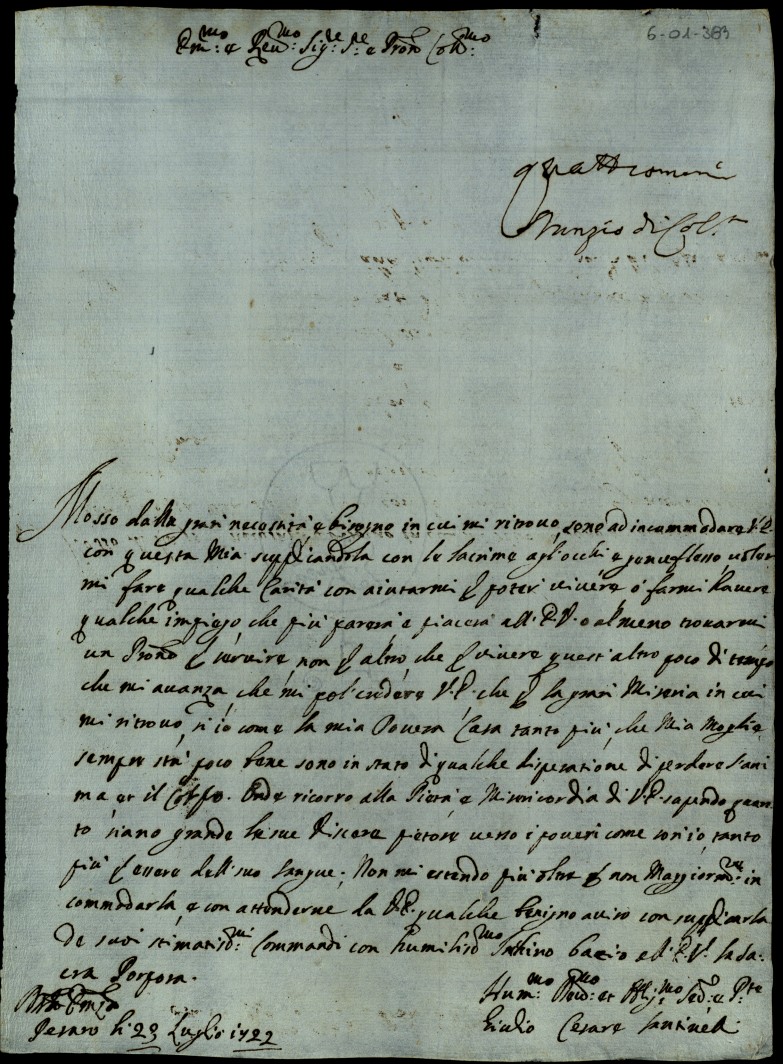 Em:mo e Reu:mo Sig:re S:re e Pron Col:mo
6-01-383
Nunzio di Col.a
Mosso dalla gran necessità e bisogno in cui mi ritrouo, sono ad incommodare V.E.
con questa Mia supplicandola con le lacrime agl'occhi e genuflesso uoler
mi fare qualche Carità con aiutarmi p poter uiuere ò farmi hauere
qualche impiego che più parerà e piacerà all'E.V. o al meno trouarmi
un Prone p seruire, non p altro che p uiuere quest'altro poco di tempo
che mi auanza, che mi pol credere V.E. che p la gran Miseria in cui
mi ritrouo, si io come la mia Pouera Casa tanto più che Mia Moglie
sempre stà poco bene sono in stato di qualche disperatione di perdere l'ani
ma et il Corpo. Onde ricorro alla Pietà e Misericordia di V.E. sapendo quan
to siano grande le sue viscere pietose uerso i poueri come son io, tanto
più p essere dell suo sangue. Non mi estendo più oltre p non Maggiorm:te in
commodarla, e con attenderne da V.E. qualche benigno auiso con supplicarla
de suoi stimatis:mi Commandi con humilis:mo Inchino bacio all'E.V. la Sa:
cra Porpora.
Pesaro li 23 Luglio 1722
Hum:mo Deu:mo et Obl:mo Ser:e e P:te
Giulio Cesare Santinelli